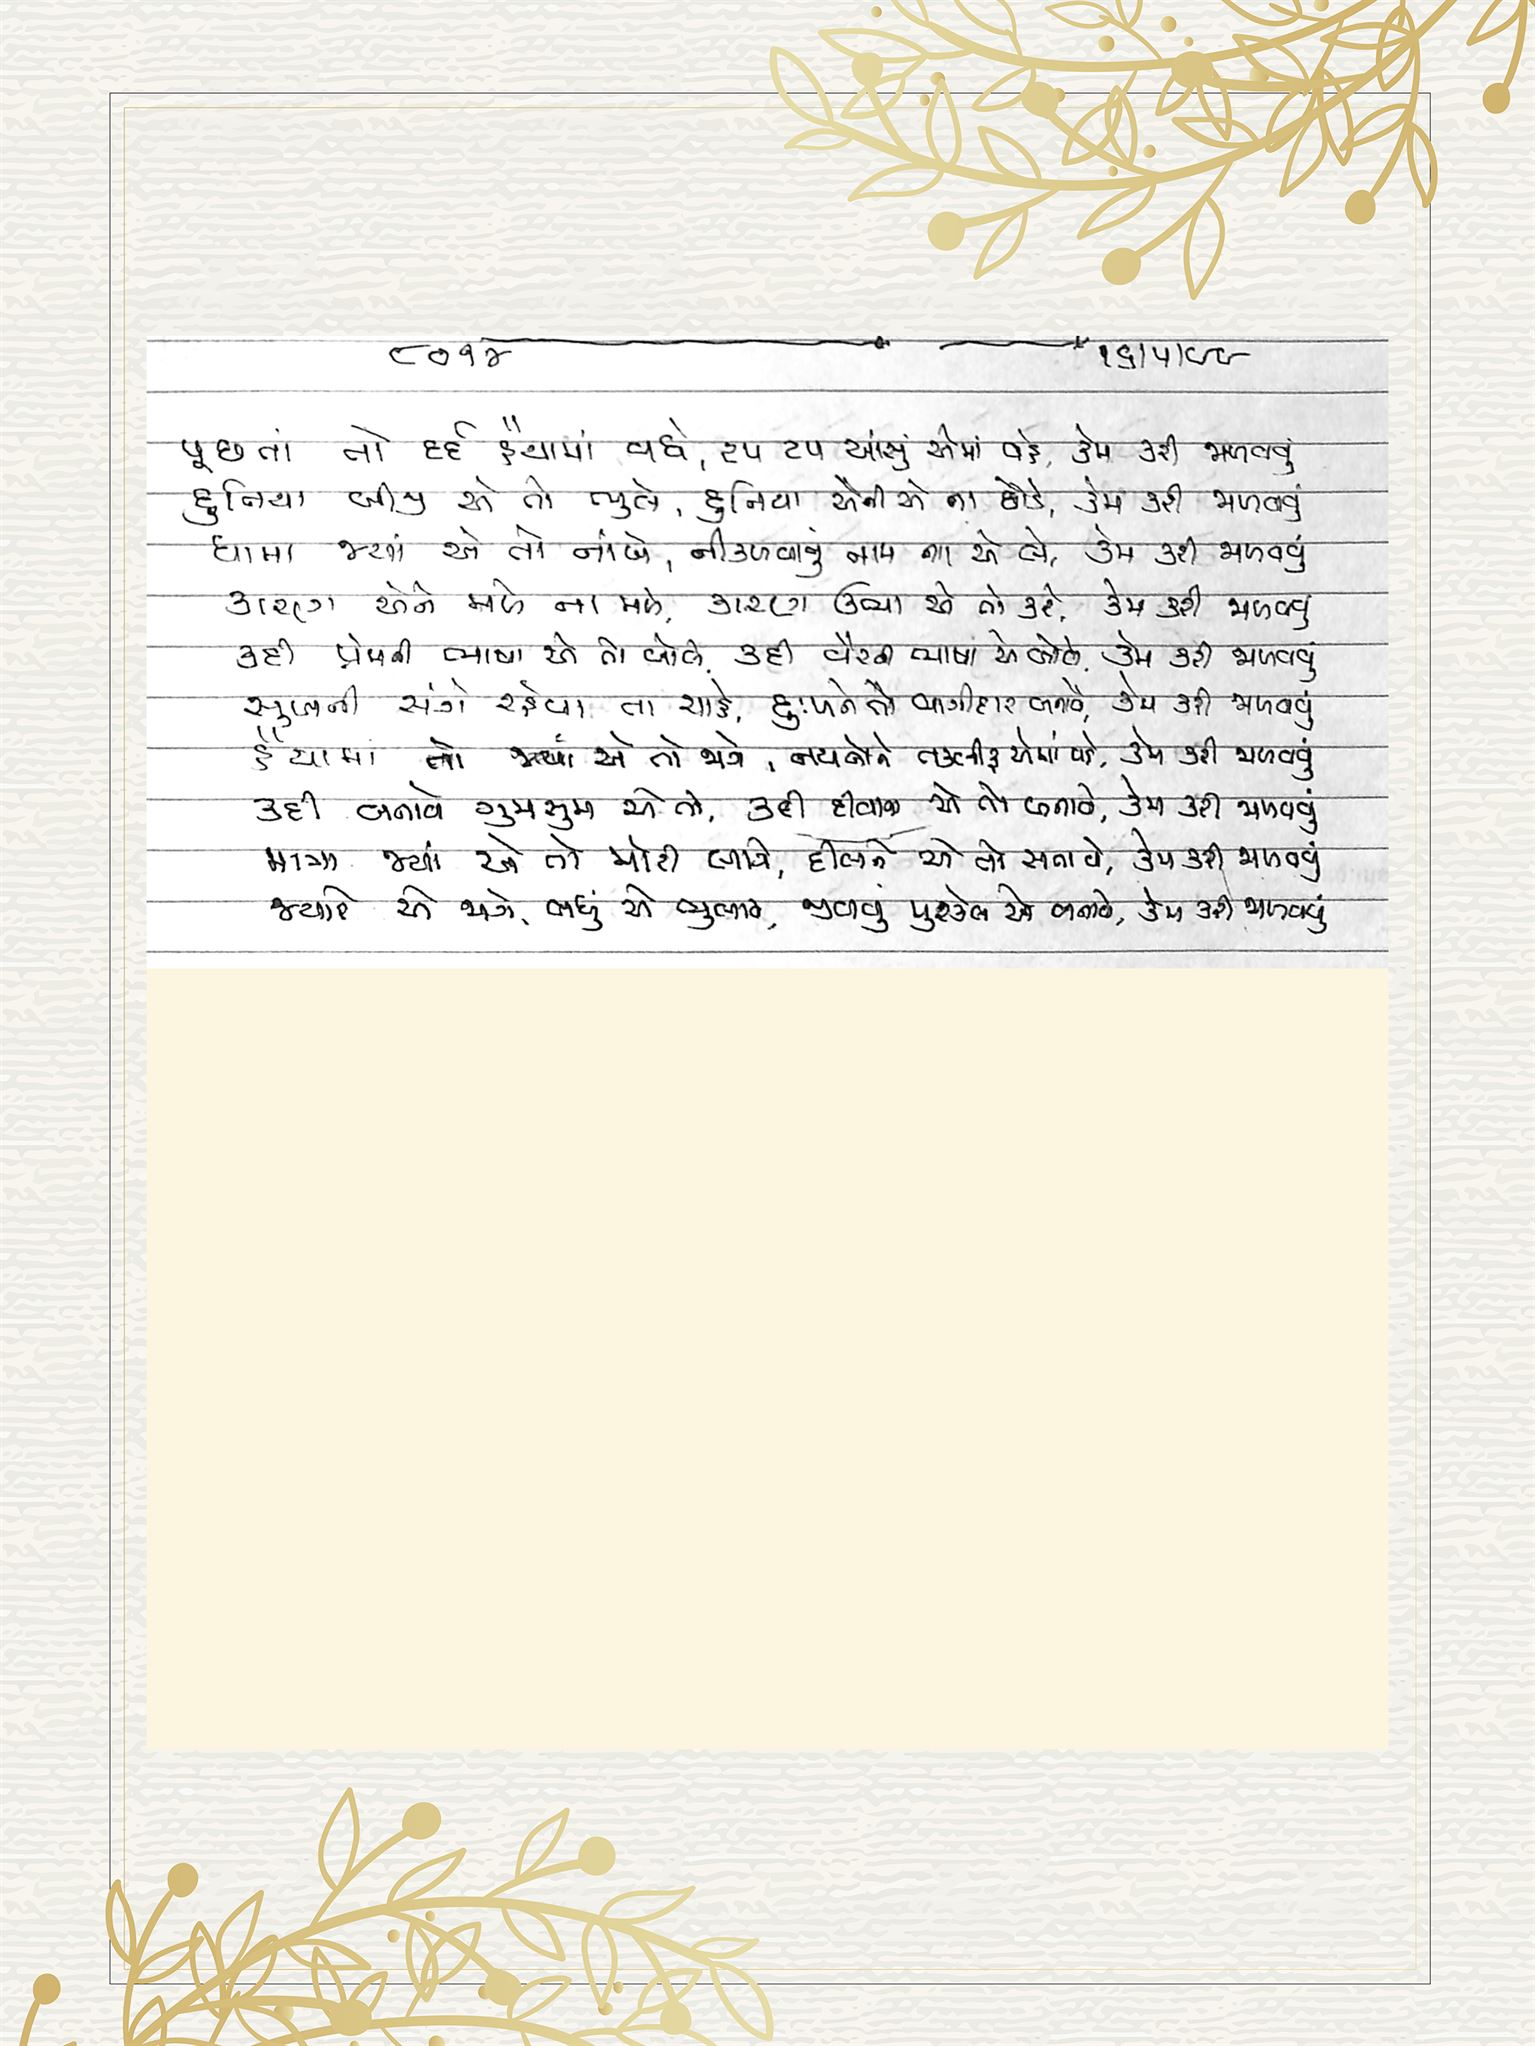 ૮૦૧૪ ૧૬/૫/૯૯
પૂછતાં તો દર્દ હૈયામાં વધે, ટપ ટપ આંસું એમાં વહે, કેમ કરી ભળવવું
દુનિયા બીજી એ તો ભુલે, દુનિયા એની એ ના છોડે, કેમ કરી ભળવવું
ધામા જ્યાં એ તો નાંખે, નીકળવાનું નામ ના એ લે, કેમ કરી ભળવવું
કારણ એને મળે ના મળે, કારણ ઉભા એ તો કરે, કેમ કરી ભળવવું
કદી પ્રેમની ભાષા એ તો બોલે, કદી વૈરની ભાષા એ બોલે, કેમ કરી ભળવવું
સુખની સંગે રહેવા ના ચાહે, દુઃખને તો ભાગીદાર બનાવે, કેમ કરી ભળવવું
હૈયામાં તો જ્યાં એ તો જાગે, નયનોને તકલીફ એમાં પડે, કેમ કરી ભળવવું
કદી બનાવે ગુમસુમ એ તો, કદી દીવાના એ તો બનાવે, કેમ કરી ભળવવું
માત્રા જ્યાં એ તો મોટી લાવે, દીલને એ તો સતાવે, કેમ કરી ભળવવું
જ્યારે એ જાગે, બધું એ ભુલાવે, જીવવું મુશ્કેલ એ બનાવે, કેમ કરી ભળવવું